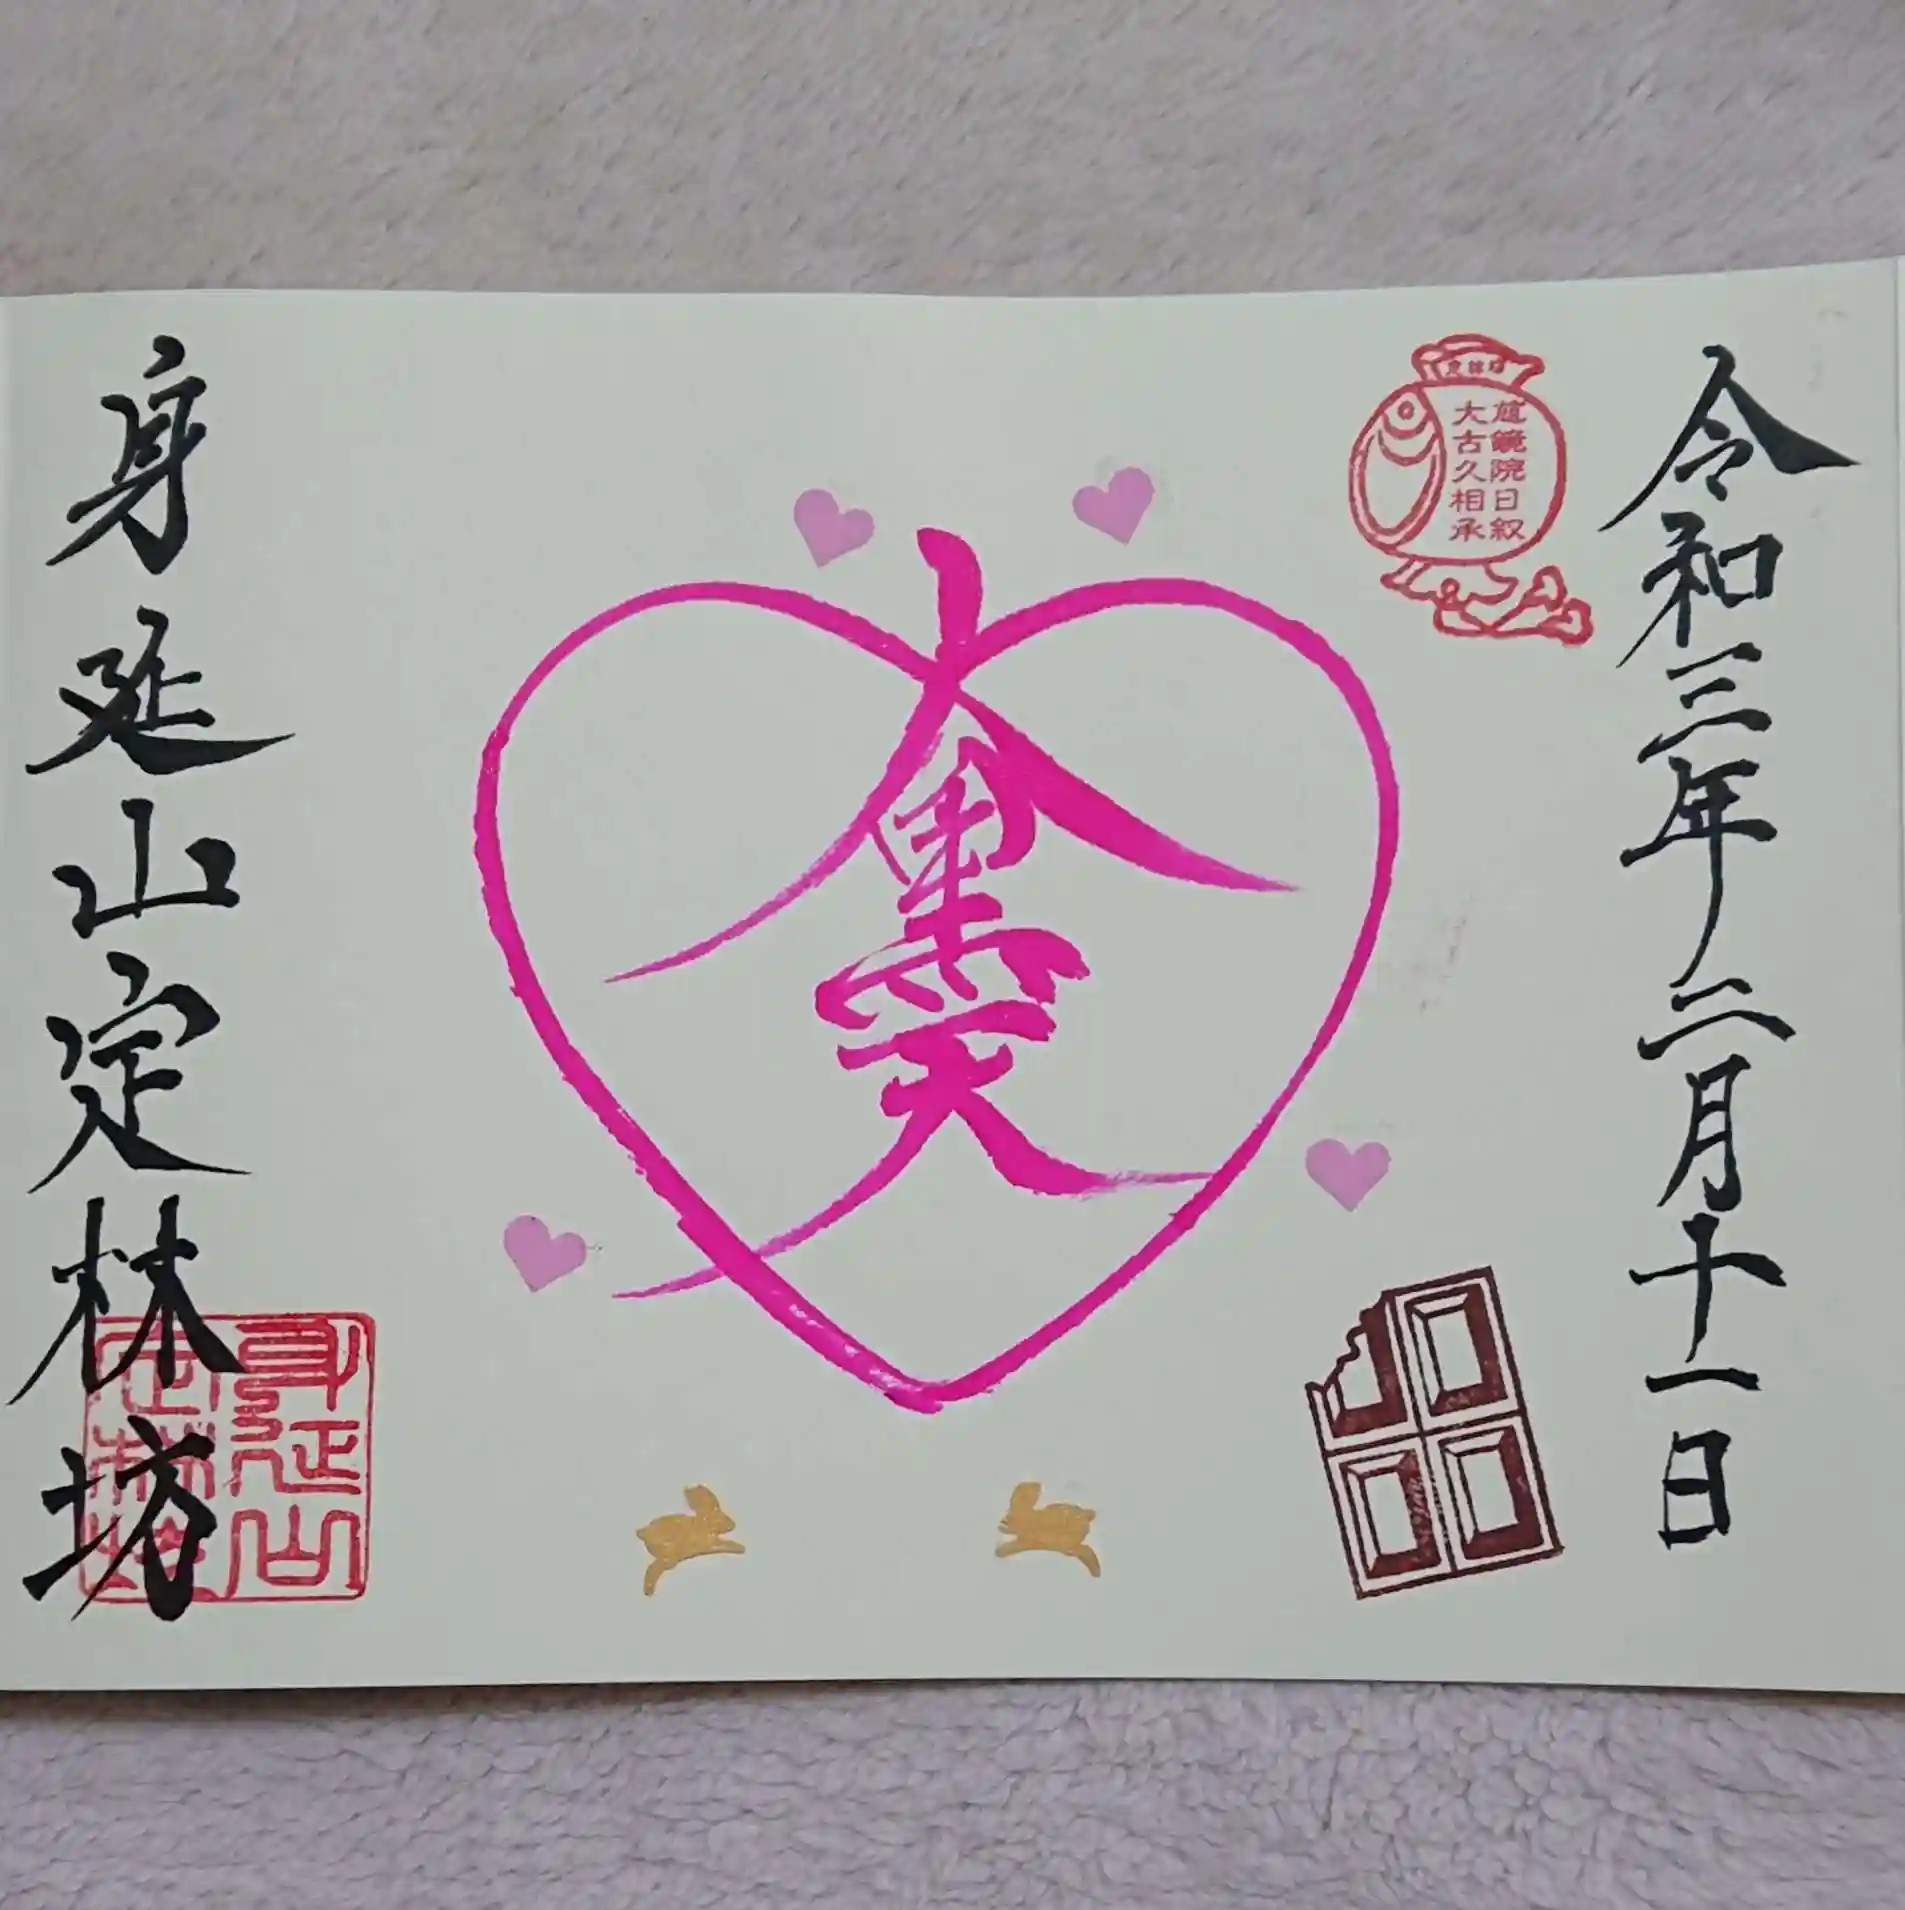 令和三年二月十一日
定林坊
鏡院日叙
大古久相承
大黒天
身延山定林坊
身延山
定林坊